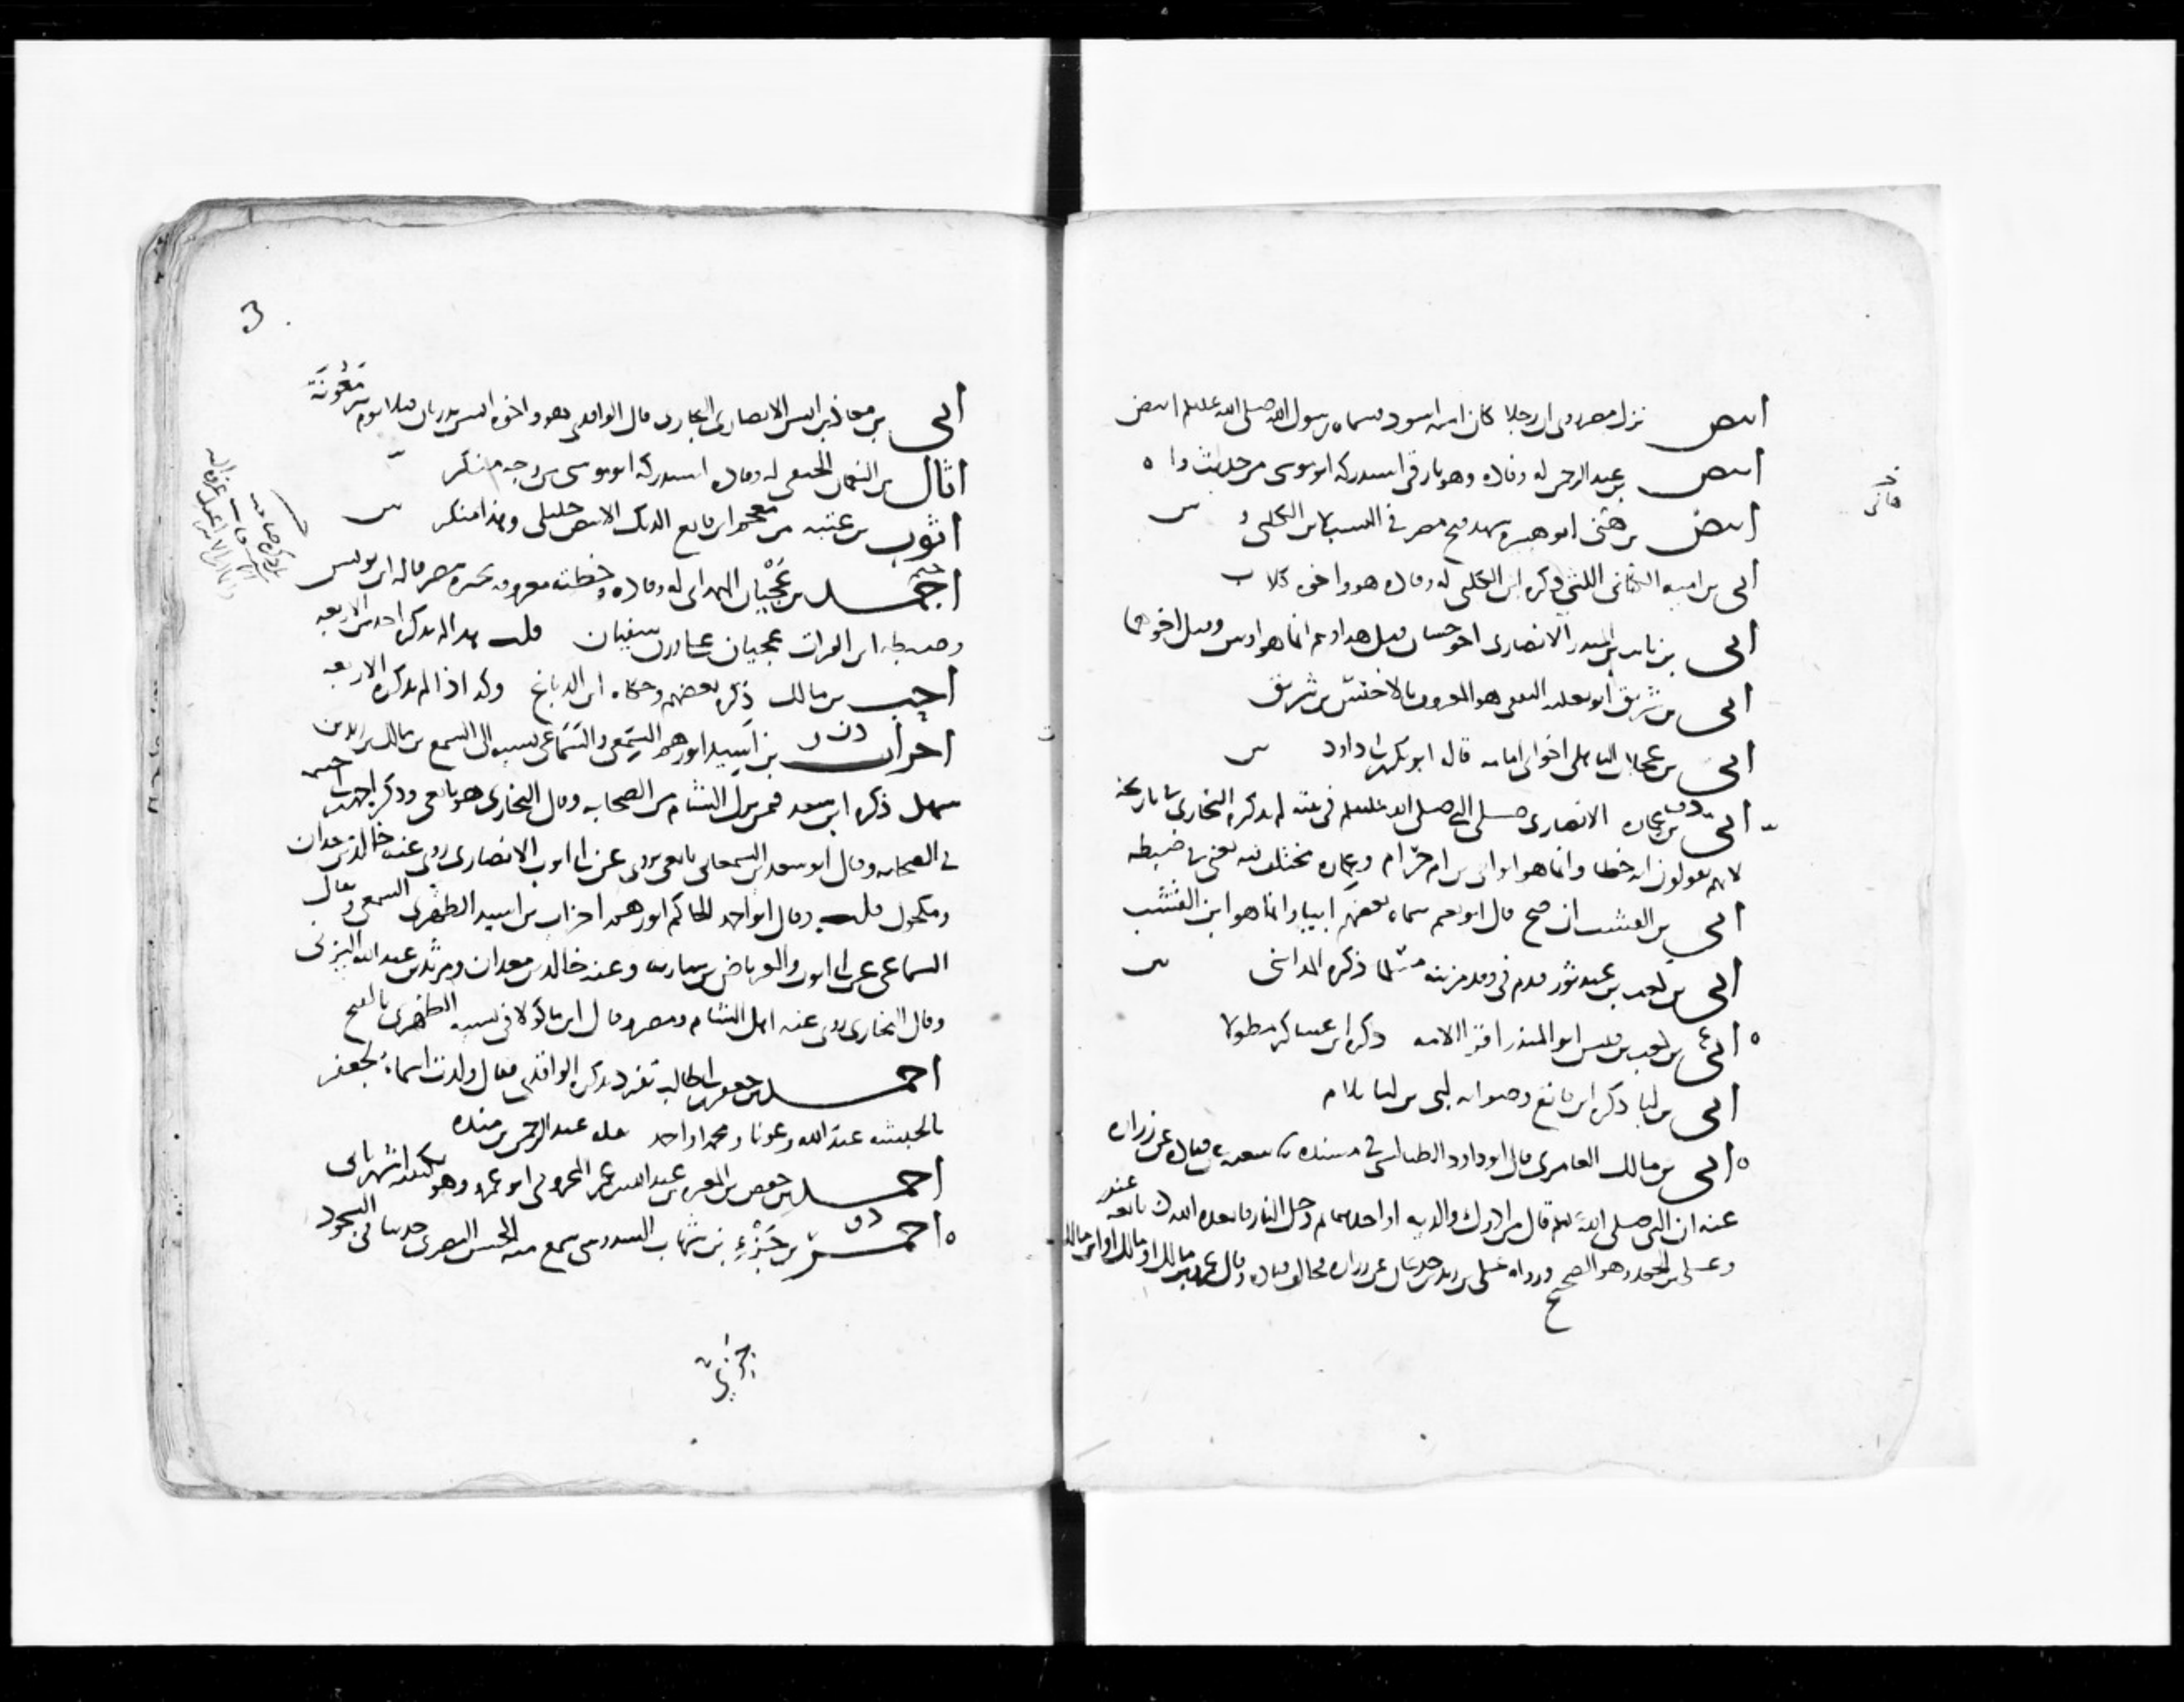 ابيض نزل مصر روى ان رجلا كان اسمه اسود فسماه رسول الله صلى الله عليه وسلم ابيض
ابيض بن عبد الرحمن له وفادة وهو بارقي استدركه ابو موسى من حديث
ابيض بن هني ابو هبيرة شهد فتح مصر في النسب لابن الكلبي
ابي بن امية الكناني الليثي ذكره ابن الكلبي له وفادة هو واخوه كلاب
ابي بن ثابت بن المنذر الانصاري اخو حسان قيل هذا وهم انما هو اوس وقيل اخوهما
ابي بن شريق ابو ثعلبة الثقفي هو المعروف بالاخنس بن شريق
ابي بن عجلان الباهلي اخو ابي امامة قاله ابو بكر بن ابي داود
ابي بن عمارة الانصاري صلى النبي صلى الله عليه وسلم في بيته لم يذكره البخاري في تاريخه
لانهم يقولون انه خطا وانما هو ابو ابي بن ام حرام وعمارة مختلف فيه يعني في ضبطه
ابي بن القشب ان صح قال ابو نعيم سماه بعضهم ابيا وانما هو ابن القشب
ابي بن كعب بن عبد ثور قدم في وفد مزينة مسلما ذكره المدائني
ابي بن كعب بن قيس ابو المنذر اقرا الامة ذكره ابن عساكر مطولا
ابي بن لبا ذكره ابن قانع وصوابه لبي بن لبا بلام
ابي بن مالك العامري قال ابو داود الطيالسي في مسنده نا شعبة عن قتادة عن زرارة
عنه ان النبي صلى الله عليه وسلم قال من ادرك والديه او احدهما ثم دخل النار فابعده الله تابعه غندر
وعلي بن الجعد وهو الصحيح ورواه علي بن زيد بن جدعان عن زرارة فخالف قتادة وقال عمرو بن مالك او مالك او ابن مالك
ابي بن معاذ بن انس الانصاري النجاري قال الواقدي هو واخوه انس بدريان قتلا يوم بئر مَعُونَة
اثال بن النعمان الحنفي له وفادة استدركه ابو موسى من وجه منكر
اثوب بن عتبة من معجم ابن قانع الديك الابيض خليلي وهذا منكر
اجمد بن عُجْيان الهمداني له وفادة وخطته معروفة بجيزة مصر قاله ابن يونس
وضبطه ابن الفرات عجيان على وزن سفيان قلت هذا لم يذكره احد من الاربعة
احب بن مالك ذكره بعضهم وحكاه ابن الدباغ وكذا لم يذكره الاربعة
احزاب بن اسيد ابو رهم السمعي والسماعي نسب الى السمع بن مالك بن زيد بن
سهل ذكره ابن سعد فيمن نزل الشام من الصحابة وقال البخاري هو تابعي وذكره ابن ابي خيثمة
في الصحابة وقال ابو سعد السمعاني تابعي يروي عن ابي ايوب الانصاري روى عنه خالد بن معدان
ومكحول قلت وقال ابو احمد الحاكم ابو رهم احزاب بن اسيد الظهري السمعي ويقال
السماعي عن ابي ايوب والعرباض بن سارية وعنه خالد بن معدان ومرثد بن عبد الله اليزني
وقال البخاري روى عنه اهل الشام ومصر وقال ابن ماكولا في نسبه الظهري بالفتح
احمد بن جعفر بن ابي طالب تفرد بذكره الواقدي فقال ولدت اسماء لجعفر
بالحبشة عبد الله وعونا ومحمدا واحمد قاله عبد الرحمن بن منده
احمد بن حفص بن المغيرة بن عبد الله بن عمر المخزومي ابو عمرو وهو بكنيته اشهر ياتي
احمر بن جَزْءِ بن شهاب السدوسي سمع منه الحسن البصري حديثا في السجود